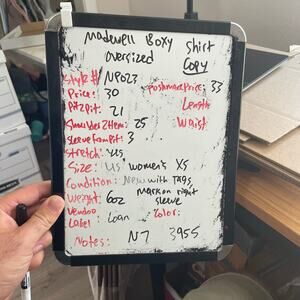 Madewell Boxy Shirt
oversized Copy
Style # NP023
Price: 30 poshmark Price: 33
Pit2Pit: 21 Length
Shoulder2Hem: 25 Waist
Sleeve From Pit: 3
Stretch: yes
Size: US women's XS
Condition: New with TAGS,
mark on right
Weight: 6oz sleeve
Vendoo Loan Color:
Label
Notes: N7 3955